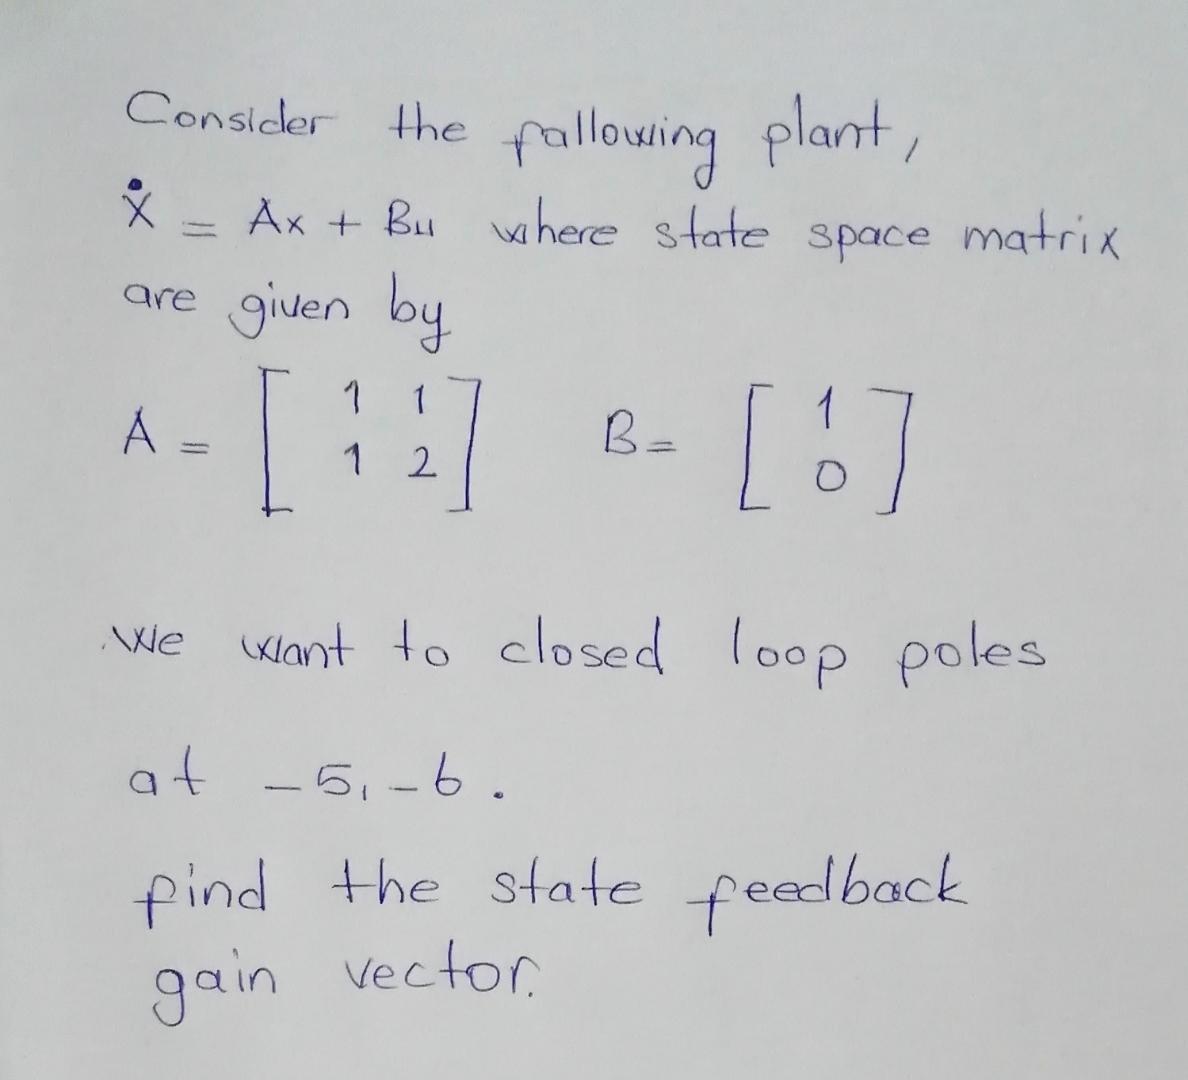 Consider the fallowing plant,
ẋ = Ax + Bu where state space matrix
are given by
A = [ 1 1 ; 1 2 ] B = [ 1 ; 0 ]
we want to closed loop poles
at -5, -6.
find the state feedback
gain vector.